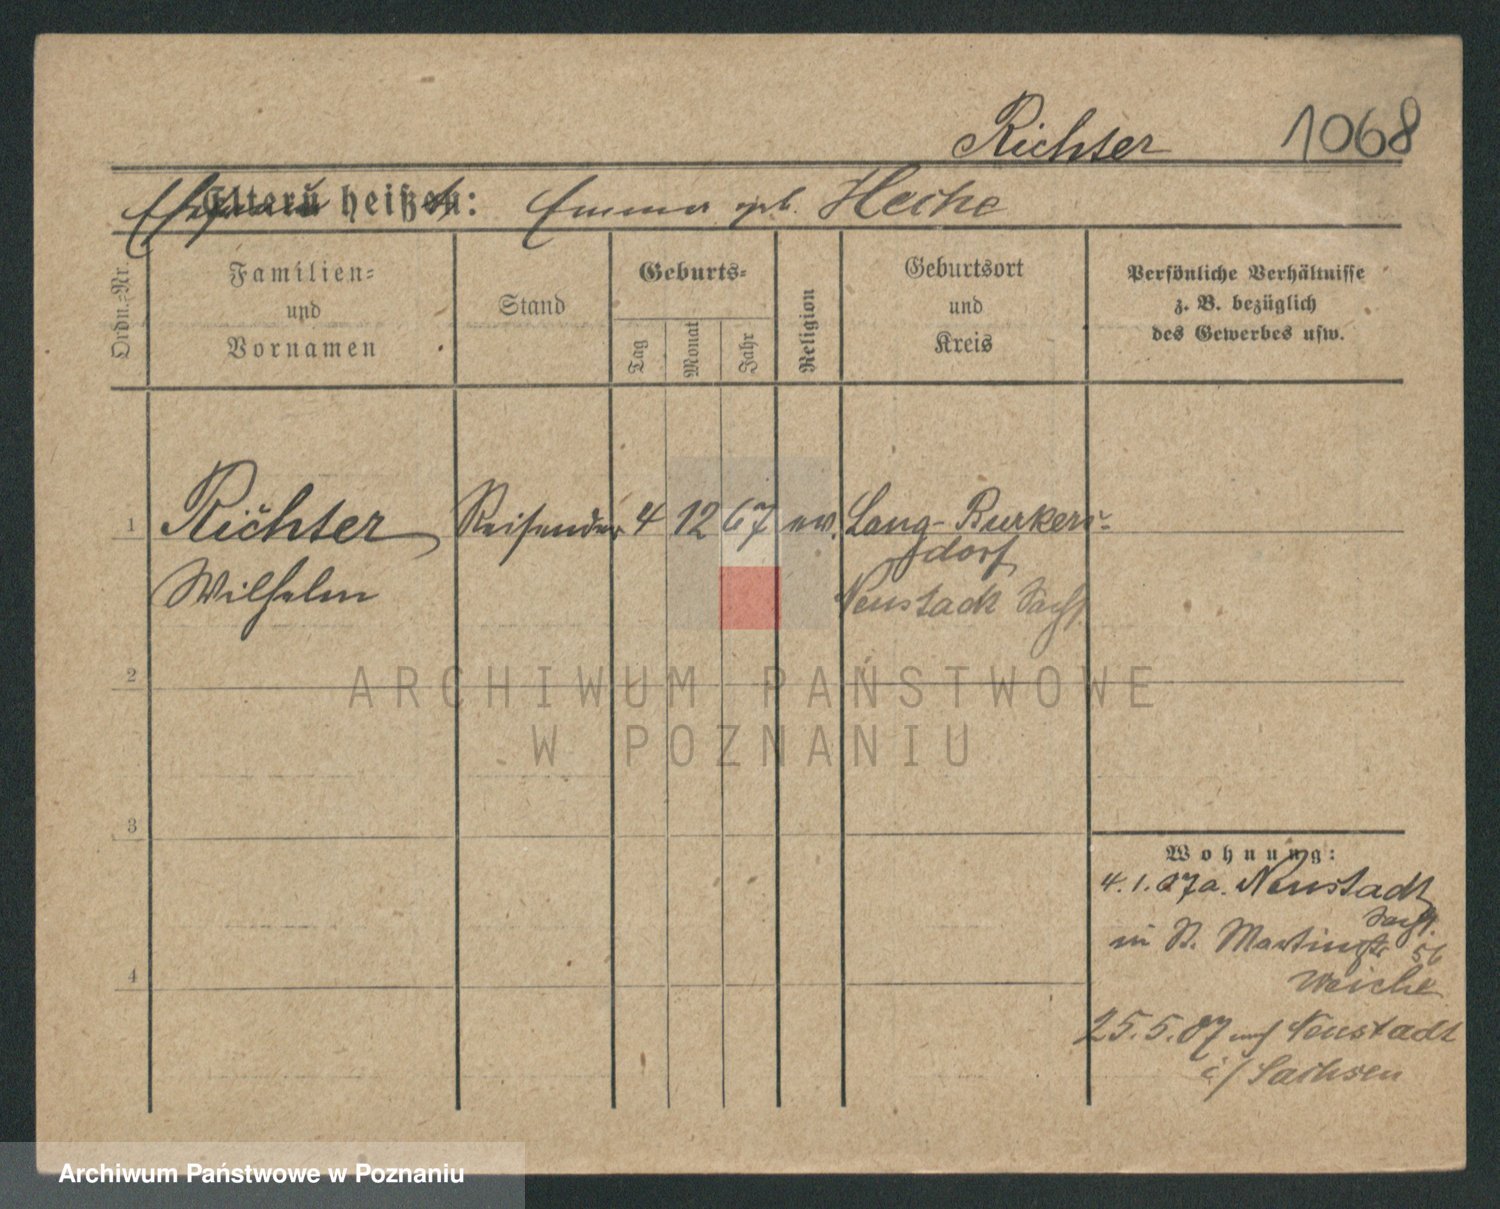 Richter 1068
Eltern heißen: Emma geb. Heche
Ordn.=Nr.
Familien=
und
Vornamen
Stand
Geburts=
Tag
Monat
Jahr
Religion
Geburtsort
und
Kreis
Persönliche Verhältnisse
z. B. bezüglich
des Gewerbes usw.
1 Richter Reisender 4 12 67 ev. Lang-Burkers-
dorf
Wilhelm Neustadt Sachs.
2
ARCHIWUM PAŃSTWOWE
W POZNANIU
3
Wohnung:
4. 1. 07 a. Neustadt
Sachs.
in St. Martinstr 56
4
25. 5. 07 nach Neustadt
i/ Sachsen
Archiwum Państwowe w Poznaniu